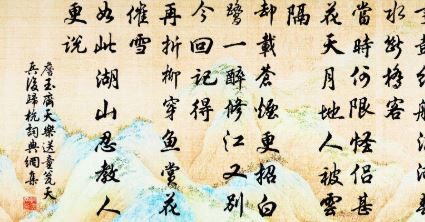 水斷橋客
當時何限怪侶甚
花天月地人被雲
隔
却載蒼煙更招白
鷺一醉修江又別
今回記得
再折柳穿魚賞花
催雪
如此湖山忍教人
更說
詹玉齊天樂送童瓮天
兵後歸杭詞典綱集